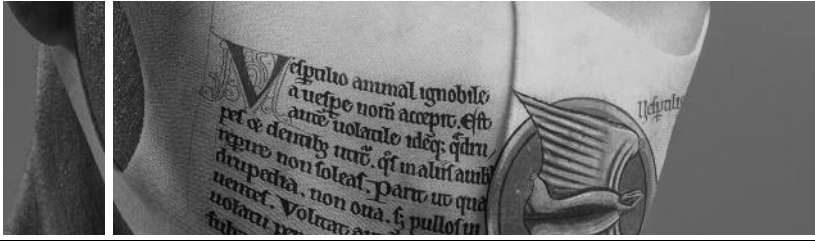 Vespertilio animal ignobile
a uespe nom̄ accepit. Est
autē uolatile idēq; q̄dru/
pes & dentibꝫ utit̄. q̄s in aliis auibꝫ
repire non soleas. Parit ut qua
drupedia. non oua. s; pullos in
uentes. Volitat
uolatu
Vespertilio